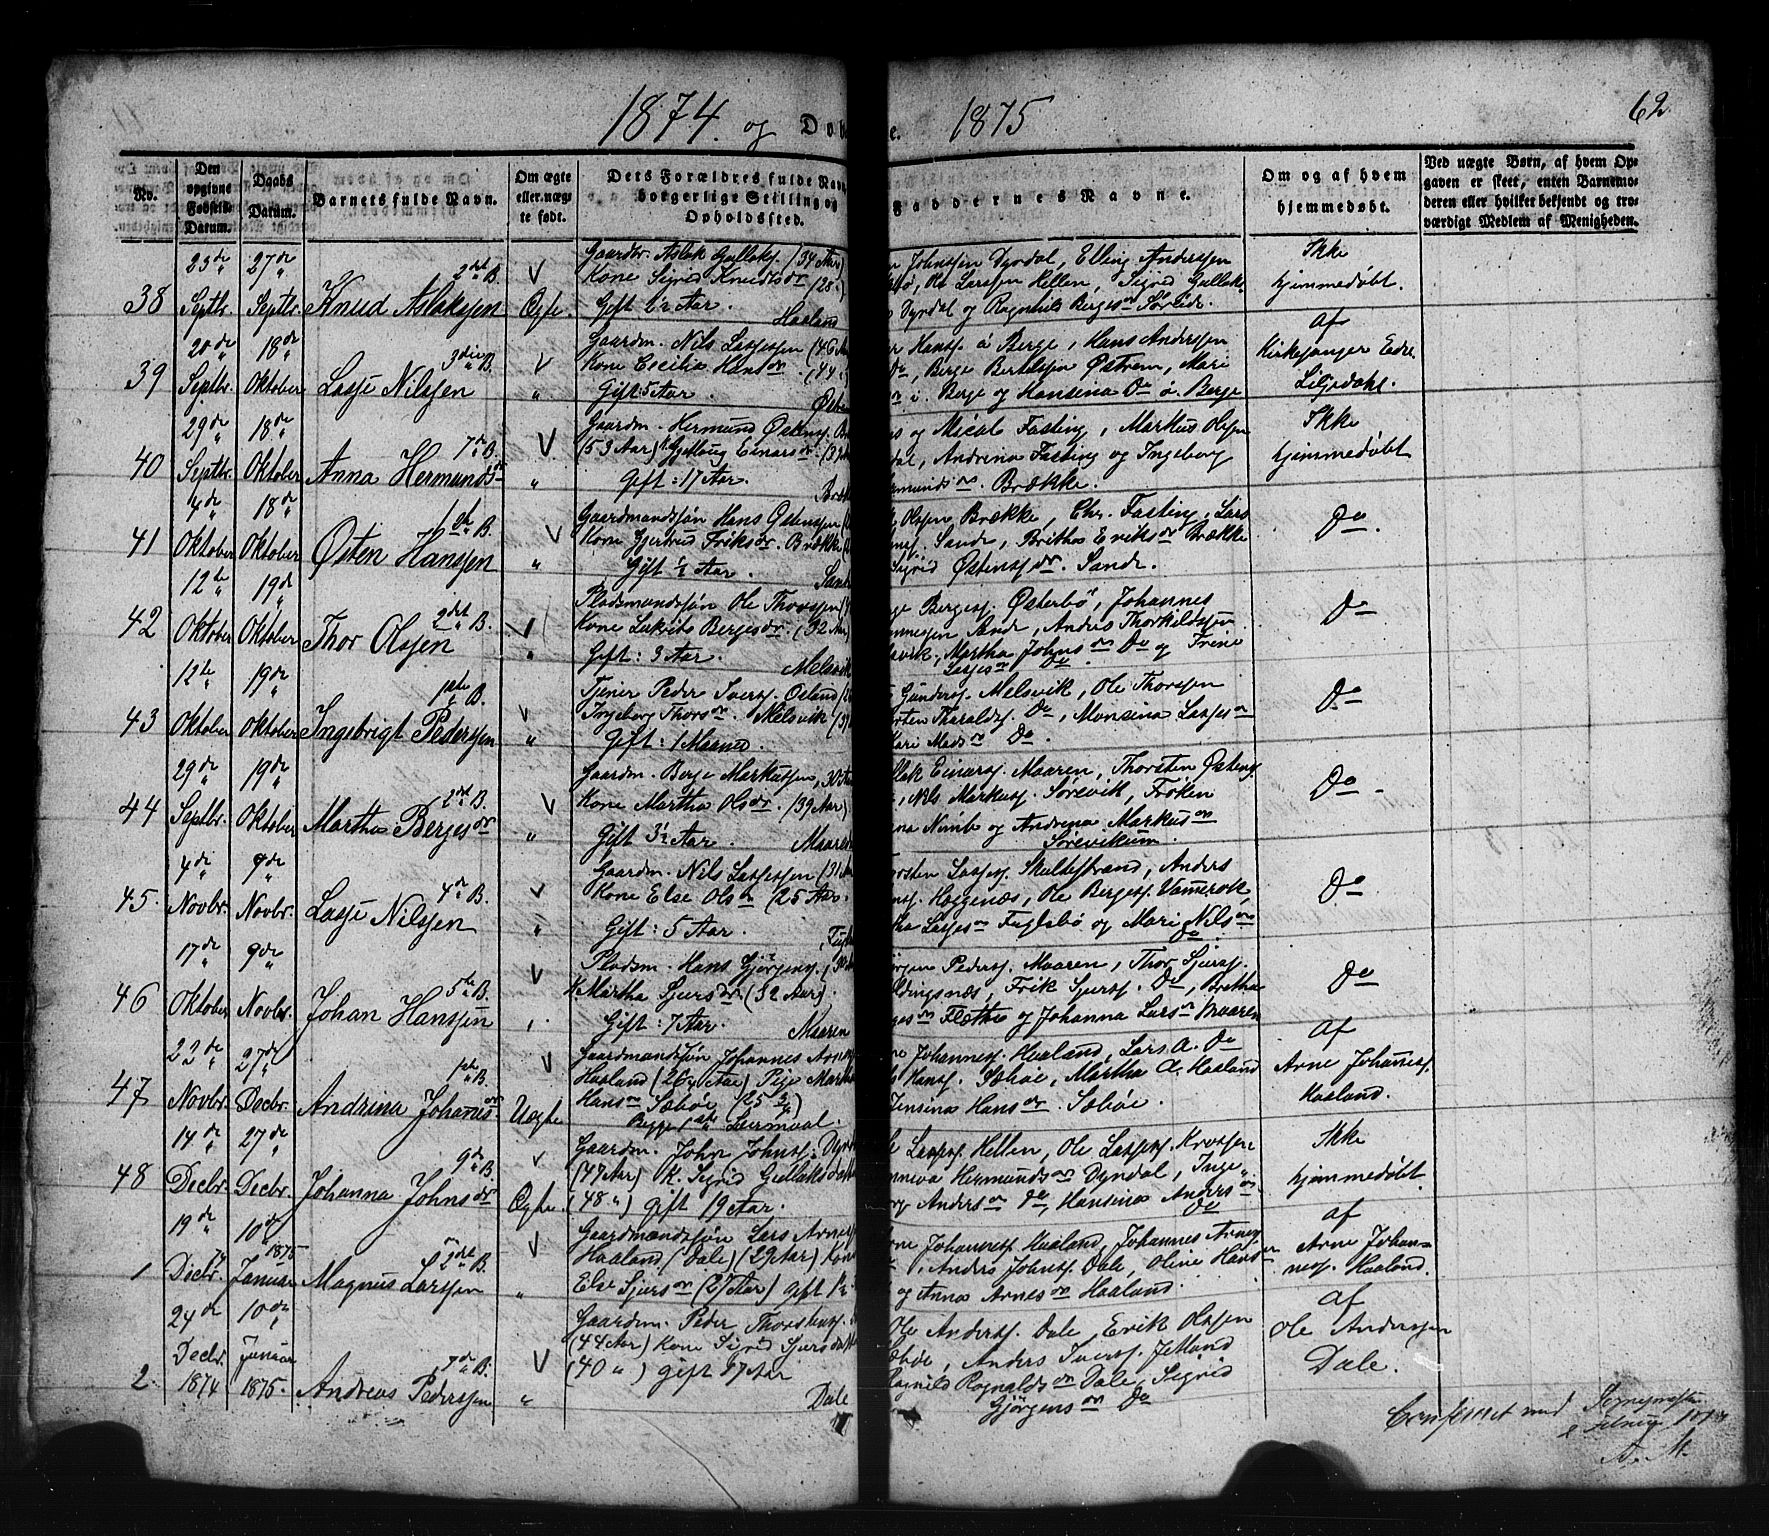 1874. og Døb
e. 1875
62.
No.
Den opgivne Fødsels Datum.
Daabs Datum.
Barnets fulde Navn.
Om ægte eller uægte født.
Dets Forældres fulde Navn, borgerlige Stilling og Opholdssted.
Faddernes Navne.
Om og af hvem hjemmedøbt.
Ved uægte Børn, af hvem Opgaven er skeet, enten Barnemoderen eller hvilket bekjendt og troværdigt Medlem af Menigheden.
38
23de Septbr.
27de Septbr.
2det B.
Knud Aslaksen
Ægte.
Gaardbr. Aslak Gullaks. (34 Aar)
Kone Sigrid Knudtsdr (28
Gift 1½ Aar.
Haaland
Johnssen Dyrdal, Elling Anderssen
Ole Larssen Hellen, Sigrid Gullaks
Dyrdal og Ragnhild Bergesdr Søreide.
Ikke
hjemmedøbt.
39
20de Septbr.
18de Oktober
3die B.
Lasse Nilssen
"
Gaardm. Nils Lassesen (46 Aar
Kone Cecilia Hansdr. (44
Gift 5 Aar.
Hans. ö Berge, Hans Anderssen
Do, Berge Bertelsen Østrem, Mari
ö. Berge og Hansina Do ö. Berge
af
Kirkesanger Endre
Liljedahl.
40
29de Septbr.
18de Oktober
7de B.
Anna Hermundsdr
"
Gaardm. Hermund Østens. Br
(53 Aar) K. Gjetloug Einarsdr. (39
Gift: 17 Aar.
og Mical Fasting, Markus Olsen
Andrina Fasting og Ingeborg
Brække.
Ikke
hjemmedøbt
41
4de Oktober
18de Oktober
1ste B.
Østen Hanssen
"
Gaardmandssøn Hans Østenssen
Kone Gjertrud Eriksdr. Brække
Gift ½ Aar.
Olsen Brække, Chr. Fasting, Lars
Sande, Britha Eriksdr Brække
Sigrid Østensdr. Sande.
Do.
42
12te Oktober
19de Oktober
2det B.
Thor Olssen
"
Pladsmandssøn Ole Thorssen
Kone Lukrits Bergesdr. (32 Aar)
Gift: 3 Aar.
Melsvik
Berges. Østerbö, Johannes
Anders Thorkildssen
Martha Johnsdr Do og Trine
Lassesdr Do
Do
43
12te Oktober
19de Oktober
1ste B.
Ingebrigt Pederssen
"
Tjener Peder Ivers. Osland
Ingeborg Thorsdr. Melsvik (31
Gift: 1 Maaned.
Gunders. Melsvik, Ole Thorssen
Tharalds. Do, Monsina Lassesdr
Kari Madsdr Do.
Do
44
29de Septbr.
19de Oktober
2det B.
Martha Bergesdr
"
Gaardm. Berge Markussen, 30 Aar
Kone Martha Olsdr. (39 Aar)
Gift 3½ Aar.
Maaren
Einars. Maaren, Thorsten Østens.
Nils Markus. Sørevik, Frøken
Nimb og Andrina Markusdr
Sørevikum.
Do
45.
4de Novbr.
9de Novbr.
4de B.
Lasse Nilssen
"
Gaardm. Nils Lassesen (31 Aar
Kone Else Olsdr (25 Aar.
Gift: 5 Aar.
Thorsten Lasses. Skultestrand, Anders
Haggenæs, Ole Berges. Vamerok
Lassesdr Fuglsbö og Mari Nilsdr
Do.
Do
46
17de Oktober
9de Novbr.
5te B.
Johan Hanssen
Pladsm. Hans Gjørgens. (30
K. Martha Sjursdr. (32 Aar).
Gift: 7 Aar.
Maaren
Jørgen Peders. Maaren, Thor Sjurs.
Erik Sjurs. Do, Bretha
Flöthe og Johanna Larsdr Maaren
Do
47
22de Novbr.
27de Decbr.
1ste B.
Andrina Johanesdr
Uægte
Gaardmandssøn Johannes Arnes.
Haaland (26½ Aar) Pige Martha
Hansdr Sæböe (25
Begge 1ste Leiermaal.
Johannes. Haaland, Lars A. Do
Hans. Sæböe, Martha A. Haaland
Jensina Hansdr. Sæböe.
af
Arne Johannes.
Haaland.
48
14de Decbr.
27de Decbr.
9de B.
Johanna Johnsdr
Ægte.
Gaardm. John Johns. Dyrd
(47 Aar) K. Sigrid Gullaksdatt
(48 ") gift 19 Aar.
Lasses. Hellen, Ole Lasses. Kvossen
Hermundsdr Dyrdal, Inge
Andersdr Do, Hansina Andersdr
Do
Ikke
hjemmedøbt.
1
19de Decbr. 74
10de Januar 1875
2det B.
Magnus Larssen
"
Gaardmandssøn Lars Arnes.
Haaland (Dale) (29 Aar) Kone
Else Sjursdr (27 Aar) gift 1½
Arne Johannes. Haaland, Johannes Arnes.
Anders Johns. Dale, Oline Hansdr
og Anna Arnesdr Haaland.
af
Arne Johan-
nes. Haaland.
2
24de Decbr. 1874
10de Januar 1875.
7de B.
Andreas Pederssen
"
Gaardm. Peder Thorstens.
(44 Aar) Kone Sigrid Sjursdatt
(40 ") gift 17 Aar
Dale
Ole Anders. Dale, Erik Olssen
Sæböe, Anders Ivers. Jetlund
Ragnild Ragnaldsdr Dale, Sigrid
Gjörgensdr Do
af
Ole Anderssen
Dale.